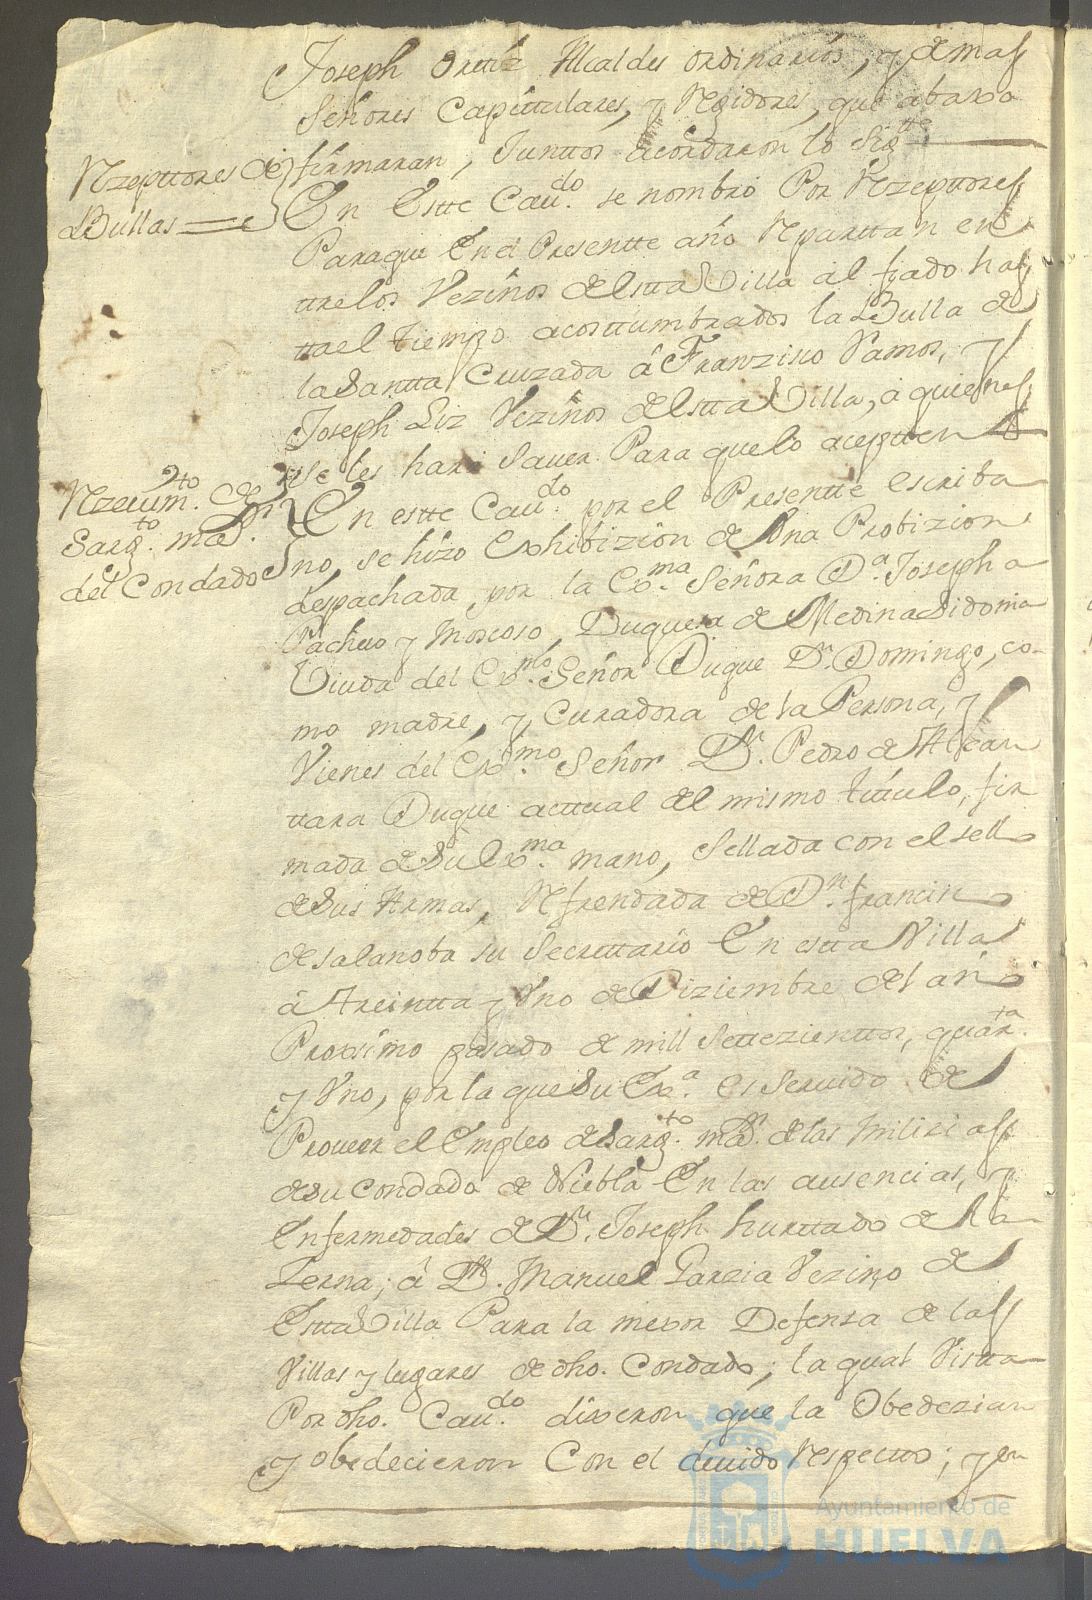 Joseph Ortiz Alcaldes ordinarios, y demas
Señores Capittulares, y Rexidores, que abaxo
firmaran, Junttos acordaron lo Sigtte
Rzepttores de
Bullas
En Estte Caudo. se nombró Por Rzepttores
Paraque En el Presentte año Reparttan en
ttrelos Vezinos de estta Villa al fiado has
ttael tiempo acosttumbrados la Bulla de
la Santta Cruzada á Franzisco Ramos, y
Joseph Liz Vezinos de estta Villa, a quienes
se les hara Sauer Para quelo acepten
Rzeuimto. de
Sargto. maor.
del Condado
En estte Caudo. por el Presentte escriba
no, se hizo Exhibizion de Vna Probizion
despachada por la Exma. Señora Da. Josepha
Pacheco y Moscoso, Duquesa de Medina Sidonia
Viuda del Exmo. Señor Duque Dn. Domingo, co-
mo madre, y Curadora de la Persona, y
Vienes del Exmo. Señor Dn. Pedro de Alcan
ttara Duque acttual del mismo título, fir
mada de Su Exma. mano, Sellada con el sello
de Sus Armas, Refrendada de Dn. francisco
de salanoba su Secrettario En estta Villa
á Treintta y Vno de Diziembre del año
Proximo pasado de mill Settezienttos, quarta.
y Vno, por la que Su Exa. es Seruido de
Proueer el Empleo de Sargto. maor. de las Milizias
de su condado de Niebla En las ausencias, y
Enfermedades de Dn. Joseph hurttado de la
Zerna; á Dn. Manuel Garzia Vezino de
Estta Villa Para la mexor Defensa de las
Villas y lugares de dho. Condado; la qual Vistta
Por dho. Caudo. dixeron que la Obedezian
y obedecieron Con el deuido Respectto; y en
Ayuntamiento de
HUELVA